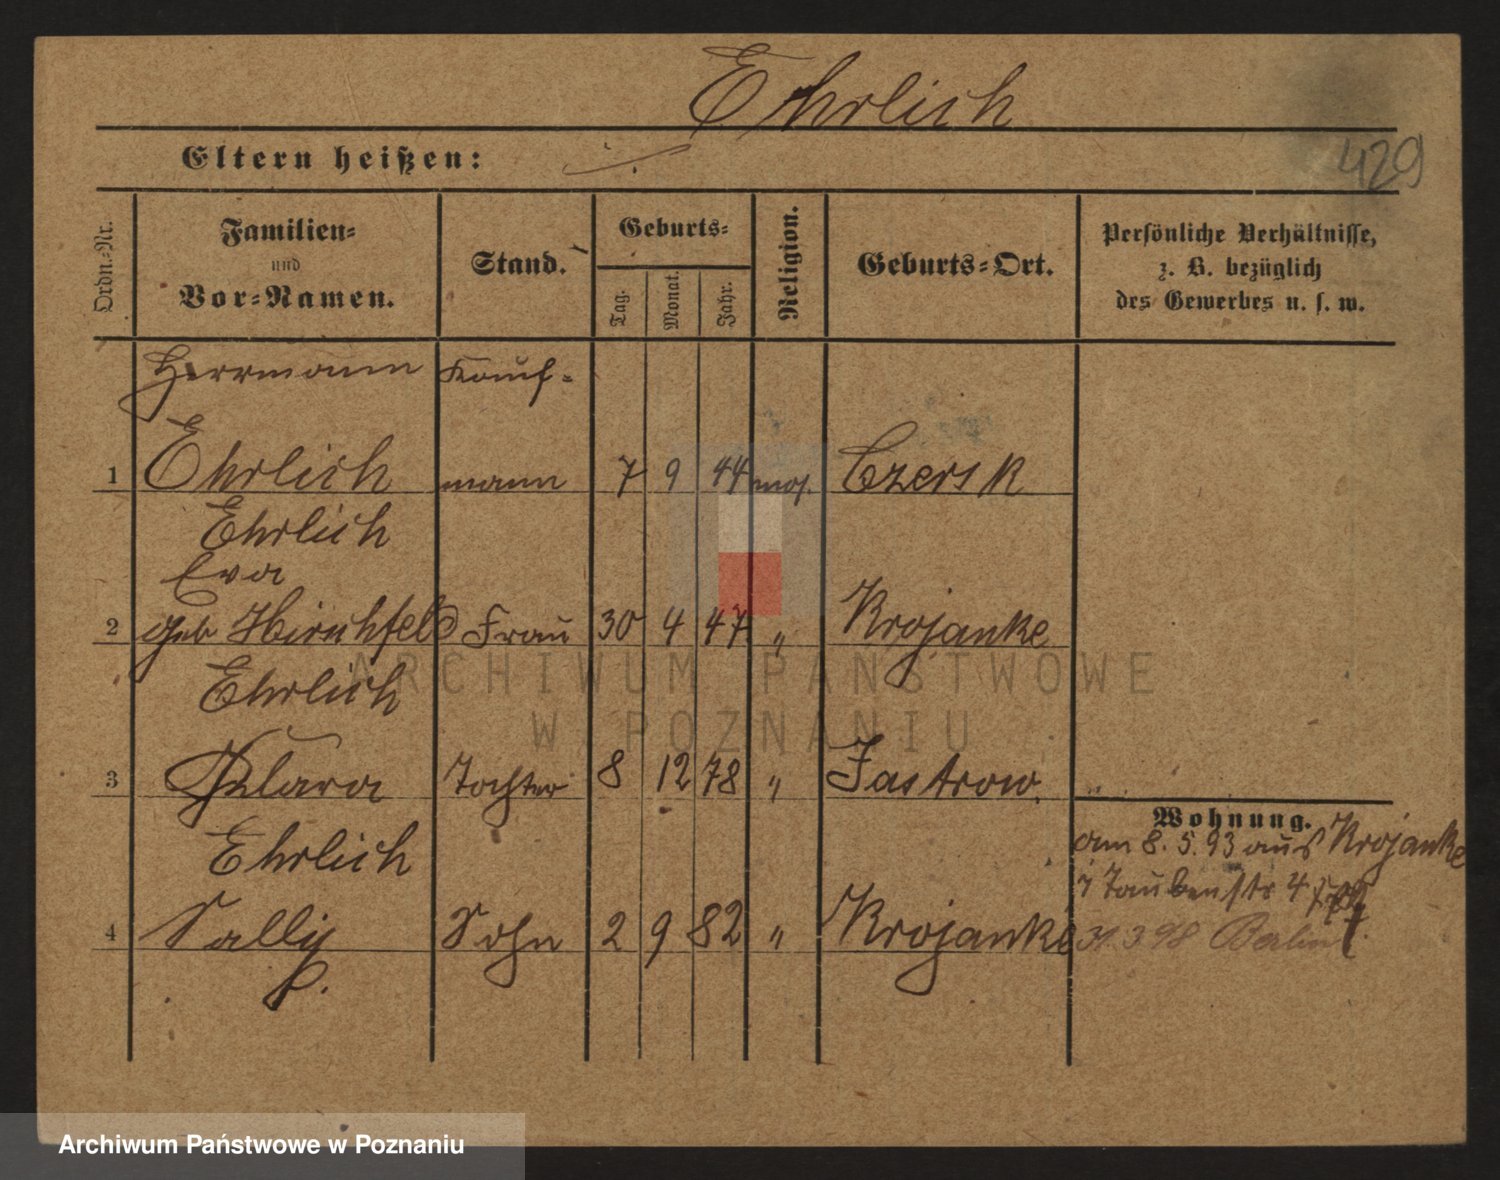 Ehrlich
429
Eltern heißen: ./.
Ordn.-Nr. Familien- und Vor-Namen. Stand. Geburts- Tag. Monat. Jahr. Religion. Geburts-Ort. Persönliche Verhältnisse, z. B. bezüglich des Gewerbes u. s. w.
Herrmann Kauf-
1 Ehrlich mann 7 9 44 mos. Czersk
Ehrlich
Eva
2 geb Hirschfeld Frau 30 4 47 " Krojanke
Ehrlich
3 Klara Tochter 8 12 78 " Jastrow
Ehrlich
4 Sally Sohn 2 9 82 " Krojanke
Wohnung.
am 8. 5. 93 aus Krojanke
Taubenstr 4
31. 3 98 Berlin
ARCHIWUM PAŃSTWOWE
W POZNANIU
Archiwum Państwowe w Poznaniu